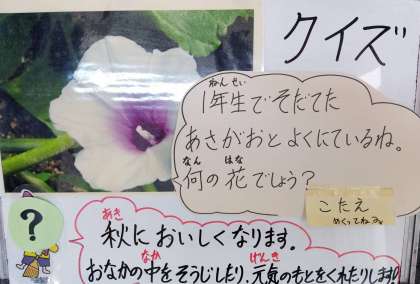 クイズ
ねんせい
1年生でそだてた
あさがおとよくにているね。
なん はな
何の花でしょう？
こたえ
めくってねみ
?
あき
秋においしくなります。
なか げんき
おなかの中をそうじしたり、元気のもとをくれたりします!